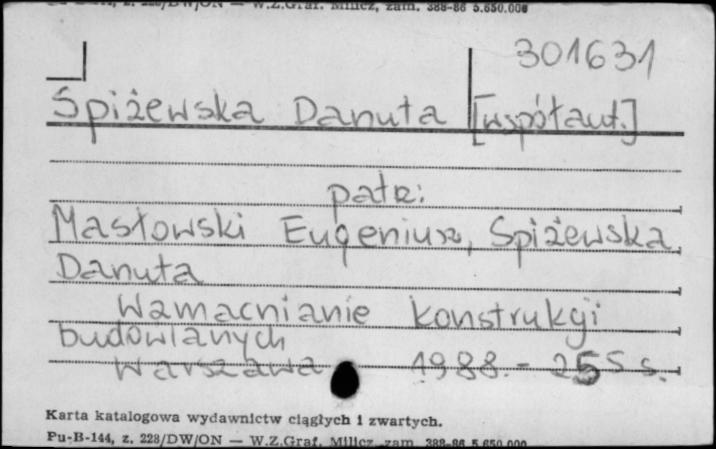 zam. 388-86 5.650.000
301631
Spiżewska Danuta [współaut.]
patrz:
Masłowski Eugeniusz, Spiżewska
Danuta
Wzmacnianie konstrukcji
budowlanych
Warszawa 1988. - 255 s.
Karta katalogowa wydawnictw ciągłych i zwartych.
Pu-B-144, z. 228/DW/ON — W.Z.Graf. Milicz, zam. 388-86 5.650.000